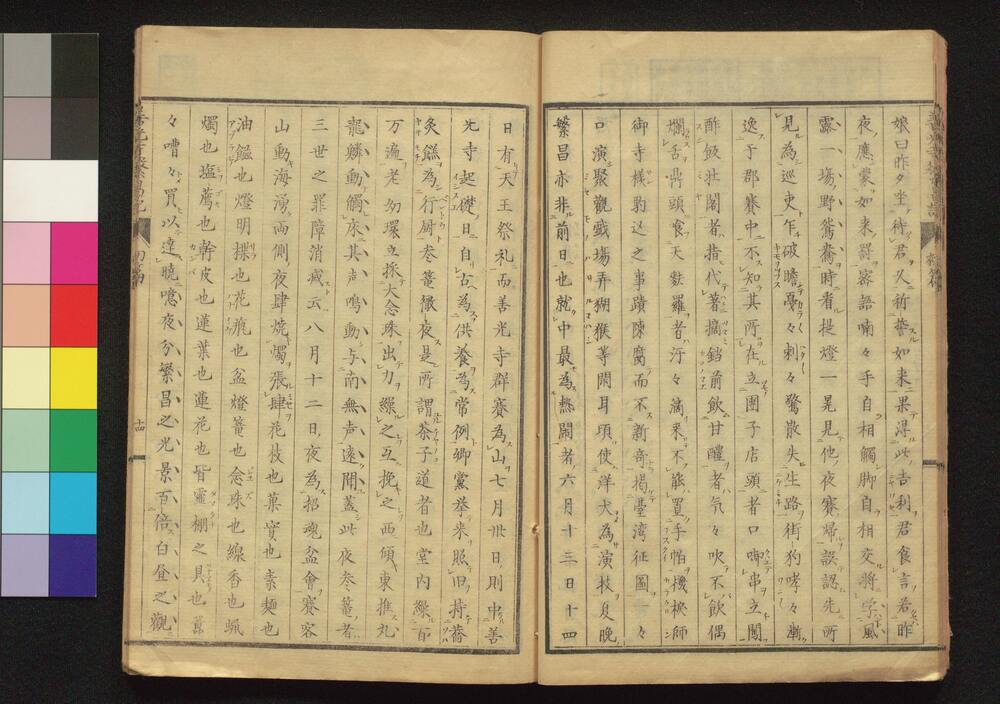 娘曰昨夕坐待君久祈誓如来果得此吉利君食言若昨
夜應蒙如来罰密語喃々手自相觸脚自相交將字風
露一場野鴛鴦時看提燈一晃見他夜賽婦誤認先所
見為巡吏乍破瞻戞々刺々驚散失生路街狗哮々漸
逸于郡賽中不知其所在立團子店頭者口啣串立鬪
酢飯壮闇者指代著摘鐺前飲甘醴者気々吹不飲偶
爛舌鼎頭食天麩羅者汗々滴釆不能買手帕機捩師
御寺様豹迯之事蹟陳腐而不新奇掲臺湾征圖々々
口演聚觀戯場弄猢猴等閑耳頃使洋犬為演技夏晩
繁昌亦非前日也就中最為熱鬧者六月十三日十四
日有天王祭礼而善光寺群賽為山七月卅日則中善
光寺起礎日自古為供養為常例郷黨挙来照旧持蕎
灸餻為行厨参篭徹夜是所謂茶子道者也堂内繰百
万遍老幼環立振大念珠出力繰之互挽之西傾東推丸
龍鱗動觸床其声鳴動与南無声遠聞蓋此夜参篭者
三世之罪障消滅云八月十二日夜為招魂盆會賽客
山動海湧両側夜肆焼燭張肆花枝也菓實也素麺也
油鎰也燈明
也花瓶也盆燈篭也念珠也線香也蝋
燭也塩薦也幹皮也蓮葉也蓮花也皆靈棚之具也蒿
々嘈々買以達曉噫夜分繁昌之光景百倍白昼之觀
十四